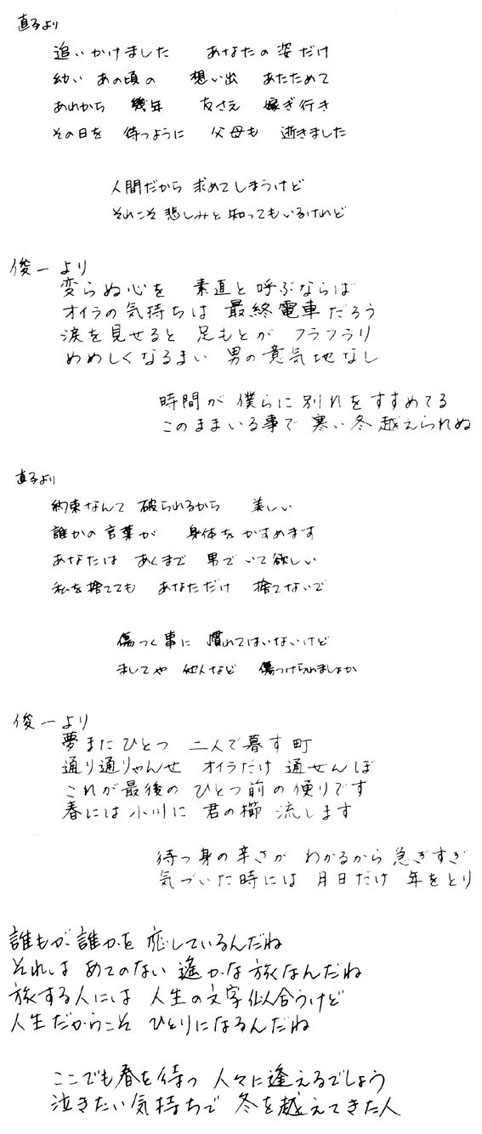 直子より
追いかけました あなたの姿だけ
幼い あの頃の 想い出 あたためて
あれから 幾年 友さえ 嫁ぎ行き
その日を 待つように 父母も 逝きました
人間だから 求めてしまうけど
それこそ 悲しみと 知ってもいるけれど
俊一より
変らぬ心を 素直と呼ぶならば
オイラの気持ちは 最終電車だろう
涙を見せると 足もとが フラフラリ
めめしくなるまい 男の意気地なし
時間が 僕らに 別れをすすめてる
このままいる事で 寒い冬 越えられぬ
直子より
約束なんて 破られるから 美しい
誰かの言葉が 身体をかすめます
あなたは あくまで 男でいて欲しい
私を捨てても あなただけ 捨てないで
傷つく事に 慣れてはいないけど
ましてや 他人など 傷つけられましょか
俊一より
夢またひとつ 二人で暮す町
通り通りゃんせ オイラだけ 通せんぼ
これが最後の ひとつ前の便りです
春には小川に 君の櫛 流します
待つ身の辛さが わかるから 急ぎすぎ
気づいた時には 月日だけ 年をとり
誰もが 誰かを 恋しているんだね
それは あてのない 遙かな旅なんだね
旅する人には 人生の文字 似合うけど
人生だからこそ ひとりになるんだね
ここでも春を待つ 人々に逢えるでしょう
泣きたい気持ちで 冬を越えてきた人